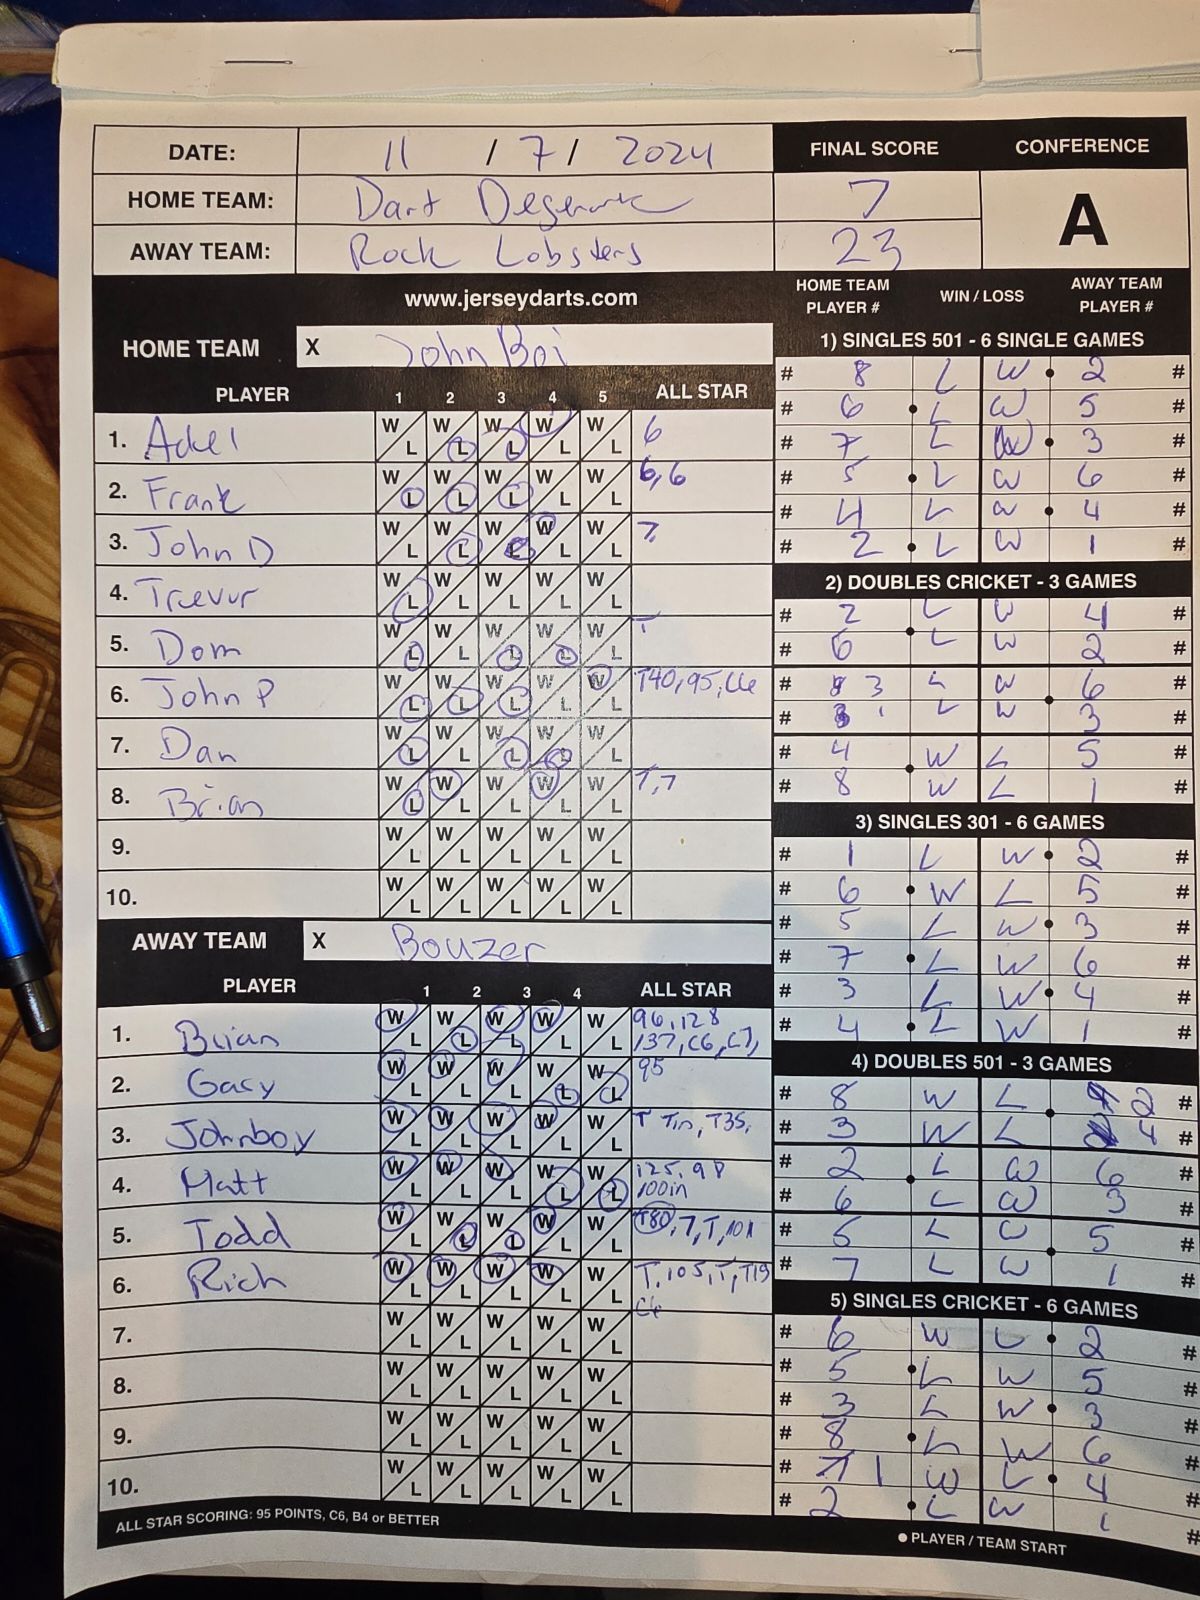 DATE: 11 / 7 / 2024
HOME TEAM: Dart
AWAY TEAM: Rock Lobsters
FINAL SCORE
7
23
CONFERENCE
A
www.jerseydarts.com
HOME TEAM X John Boi
PLAYER 1 2 3 4 5 ALL STAR
1. Adel W L W L W L W L W L 6
2. Frank W L W L W L W L W L 6,6
3. John D W L W L W L W L W L 7
4. Trevur W L W L W L W L W L
5. Dom W L W L W L W L W L T
6. John P W L W L W L W L W L T40, 95, C6
7. Dan W L W L W L W L W L
8. Brian W L W L W L W L W L T,7
9. W L W L W L W L W L
10. W L W L W L W L W L
AWAY TEAM X Bouzer
PLAYER 1 2 3 4 ALL STAR
1. Brian W L W L W L W L W L 96, 128
137, C6, C7,
2. Gary W L W L W L W L W L 95
3. Johnboy W L W L W L W L W L T T1n, T35,
4. Matt W L W L W L W L W L 125, 98
100in
5. Todd W L W L W L W L W L T80, 7, T, 101
6. Rich W L W L W L W L W L T, 105, T, T19
C6
7. W L W L W L W L W L
8. W L W L W L W L W L
9. W L W L W L W L W L
10. W L W L W L W L W L
ALL STAR SCORING: 95 POINTS, C6, B4 or BETTER
HOME TEAM PLAYER # WIN / LOSS AWAY TEAM PLAYER #
1) SINGLES 501 - 6 SINGLE GAMES
# 8 L W 2 #
# 6 L W 5 #
# 7 L W 3 #
# 5 L W 6 #
# 4 L W 4 #
# 2 L W 1 #
2) DOUBLES CRICKET - 3 GAMES
# 2 L W 4 #
# 6 L W 2 #
# 3 L W 6 #
# 1 L W 3 #
# 4 W L 5 #
# 8 W L 1 #
3) SINGLES 301 - 6 GAMES
# 1 L W 2 #
# 6 W L 5 #
# 5 L W 3 #
# 7 L W 6 #
# 3 L W 4 #
# 4 L W 1 #
4) DOUBLES 501 - 3 GAMES
# 8 W L 2 #
# 3 W L 4 #
# 2 L W 6 #
# 6 L W 3 #
# 5 L W 5 #
# 7 L W 1 #
5) SINGLES CRICKET - 6 GAMES
# 6 W L 2 #
# 5 L W 5 #
# 3 L W 3 #
# 8 L W 6 #
# 7 1 W L 4 #
# 2 L W 1 #
PLAYER / TEAM START